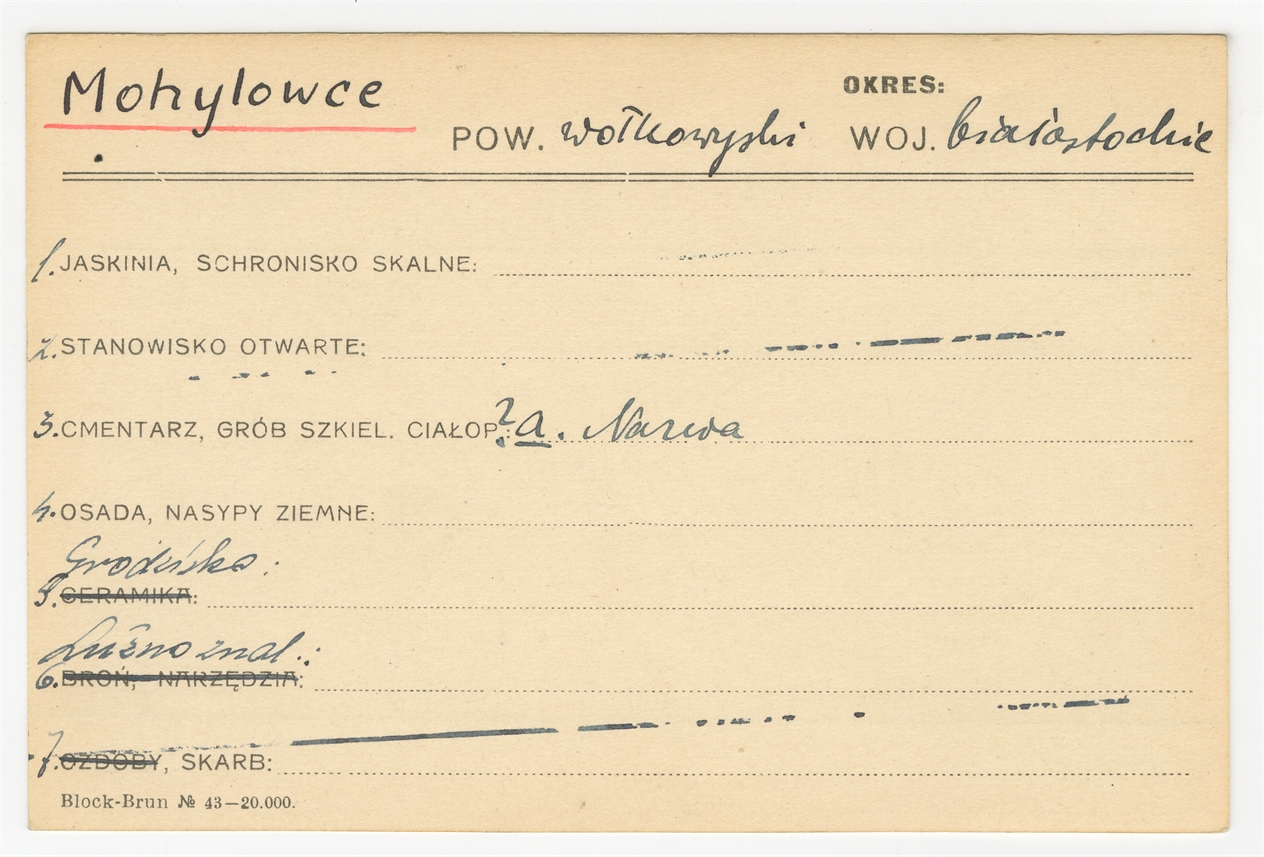 Mohylowce
OKRES:
POW. wołkowyski WOJ. białostockie
1. JASKINIA, SCHRONISKO SKALNE:
2. STANOWISKO OTWARTE:
3. CMENTARZ, GRÓB SZKIEL. CIAŁOP.: ? a. Narwa
4. OSADA, NASYPY ZIEMNE:
Grodzisko:
5. CERAMIKA:
Luźno znal.:
6. BROŃ, NARZĘDZIA:
7. OZDOBY, SKARB:
Block-Brun № 43—20.000.